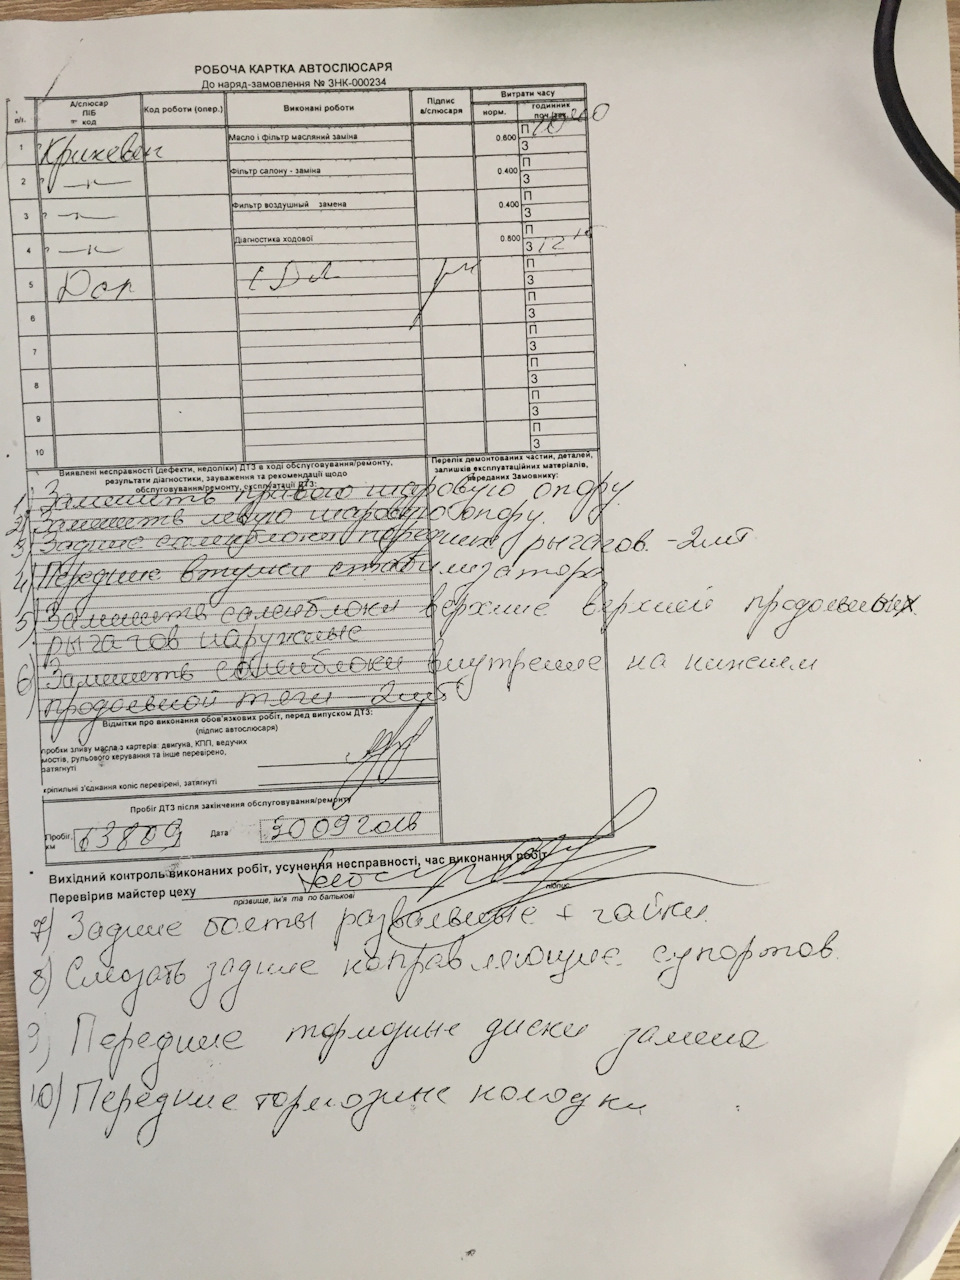 РОБОЧА КАРТКА АВТОСЛЮСАРЯ
До наряд-замовлення № ЗНК-000234
№ п/п. А/слюсар ПІБ код Код роботи (опер.) Виконані роботи Підпис а/слюсаря Витрати часу
норм. годинник
1 Масло і фільтр масляний заміна 0.600 П
З
2 Фільтр салону - заміна 0.400 П
З
3 Фильтр воздушный замена 0.400 П
З
4 Діагностика ходової 0.600 П
З 12
5 П
З
6 П
З
7 П
З
8 П
З
9 П
З
10 П
З
Виявлені несправності (дефекти, недоліки) ДТЗ в ході обслуговування/ремонту,
результати діагностики, зауваження та рекомендації щодо
обслуговування/ремонту, експлуатації ДТЗ:
Перелік демонтованих частин, деталей,
залишків експлуатаційних матеріалів,
переданих Замовнику:
1) Заменить правою шаровую опору
2) Заменить левую шаровую опору.
3) Задние саленблоки передних рычагов - 2шт
4) Передние втулки стабилизатора
5) Заменить саленблоки верхние верхней продоевных
рычагов наружные
6) Заменить саленблоки внутрение на нижнем
продоевной тяги - 2шт
Відмітки про виконання обов'язкових робіт, перед випуском ДТЗ:
(підпис автослюсаря)
пробки зливу масла,з картерів: двигуна, КПП, ведучих
мостів, рульового керування та інше перевірено,
затягнуті
кріпильні з'єднання коліс перевірені, затягнуті
Пробіг ДТЗ після закінчення обслуговування/ремонту
Пробіг, км 63809 Дата 30092016
Вихідний контроль виконаних робіт, усунення несправності, час виконання робіт
Перевірив майстер цеху
прізвище, ім'я та по батькові підпис
7) Задние болты развальные + гайки.
8) Смозать задние направляющие супортов.
9) Передние тормозные диски замена
10) Передние тормозные колодки